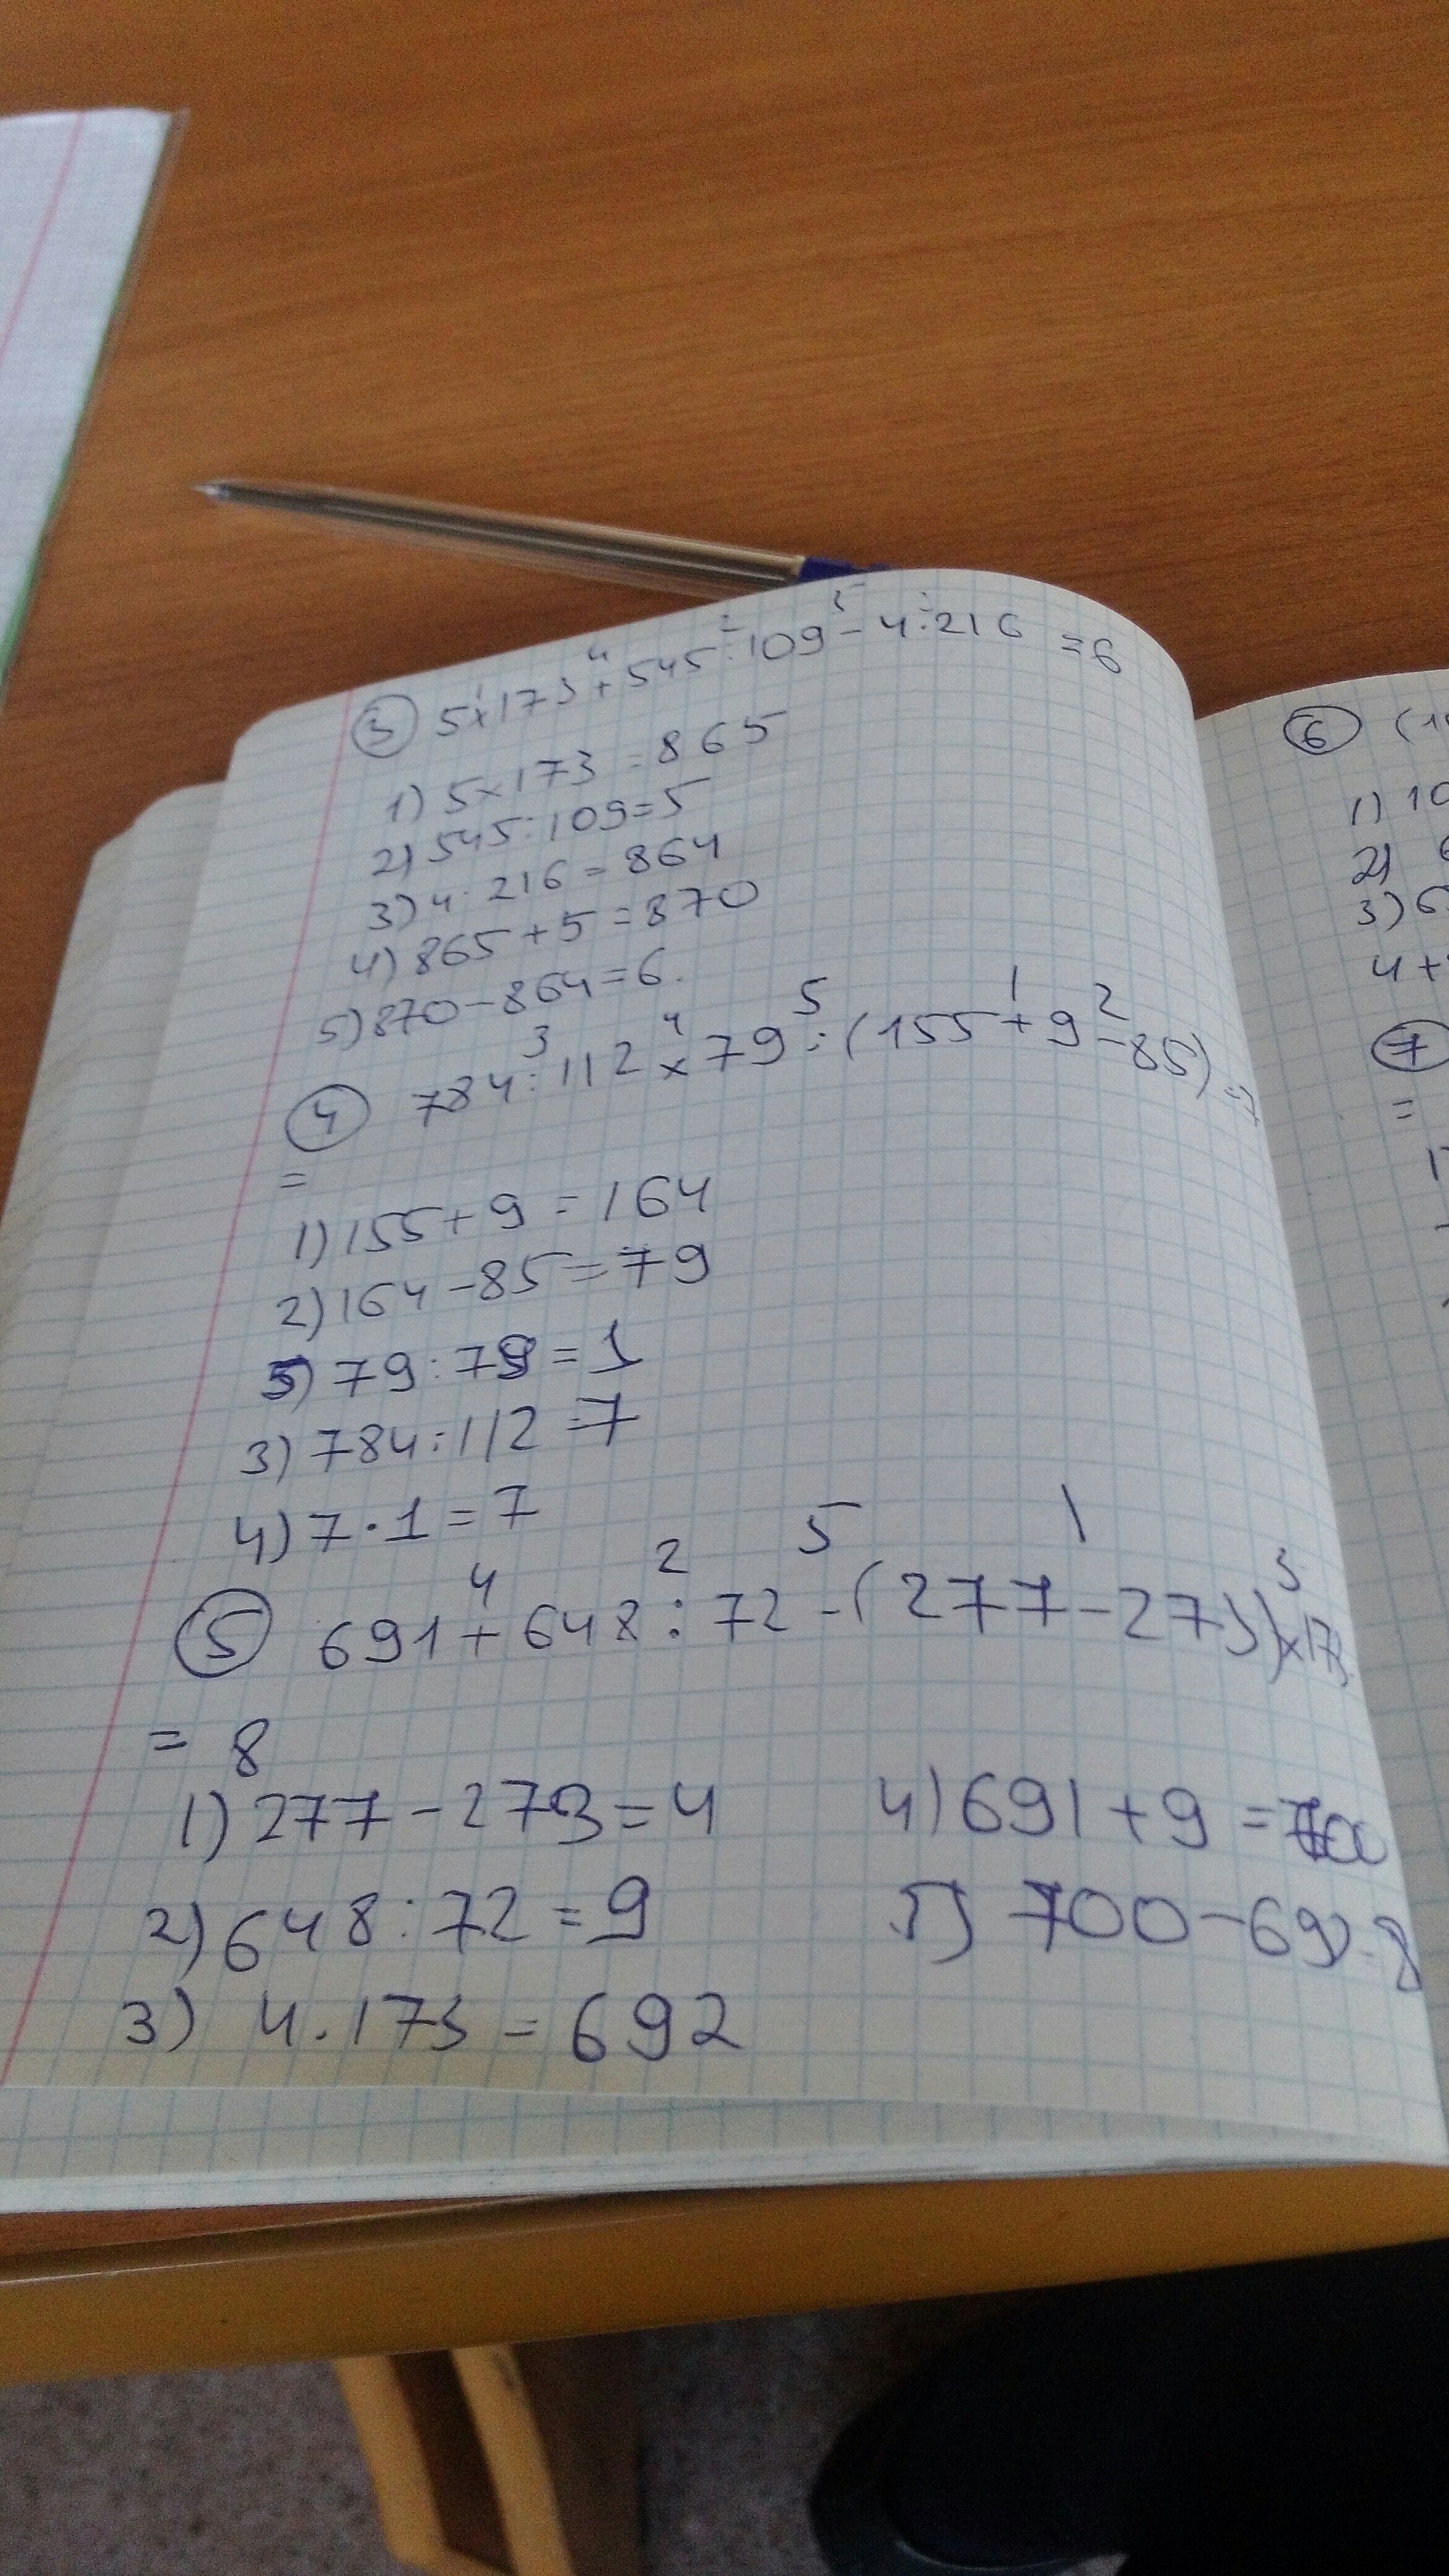 3 5×173+545:109-4:216 =6
1) 5×173=865
2) 545:109=5
3) 4·216=864
4) 865+5=870
5) 870-864=6.
4 784:112×79:(155+9-85)=7
=
1) 155+9=164
2) 164-85=79
5) 79:79=1
3) 784:112=7
4) 7·1=7
5 691+648:72-(277-273)×173
= 8
1) 277-273=4
2) 648:72=9
3) 4·173=692
4) 691+9=700
5) 700-692=8
6 (1
1) 10
2) 6
3) 6
4+
7
=